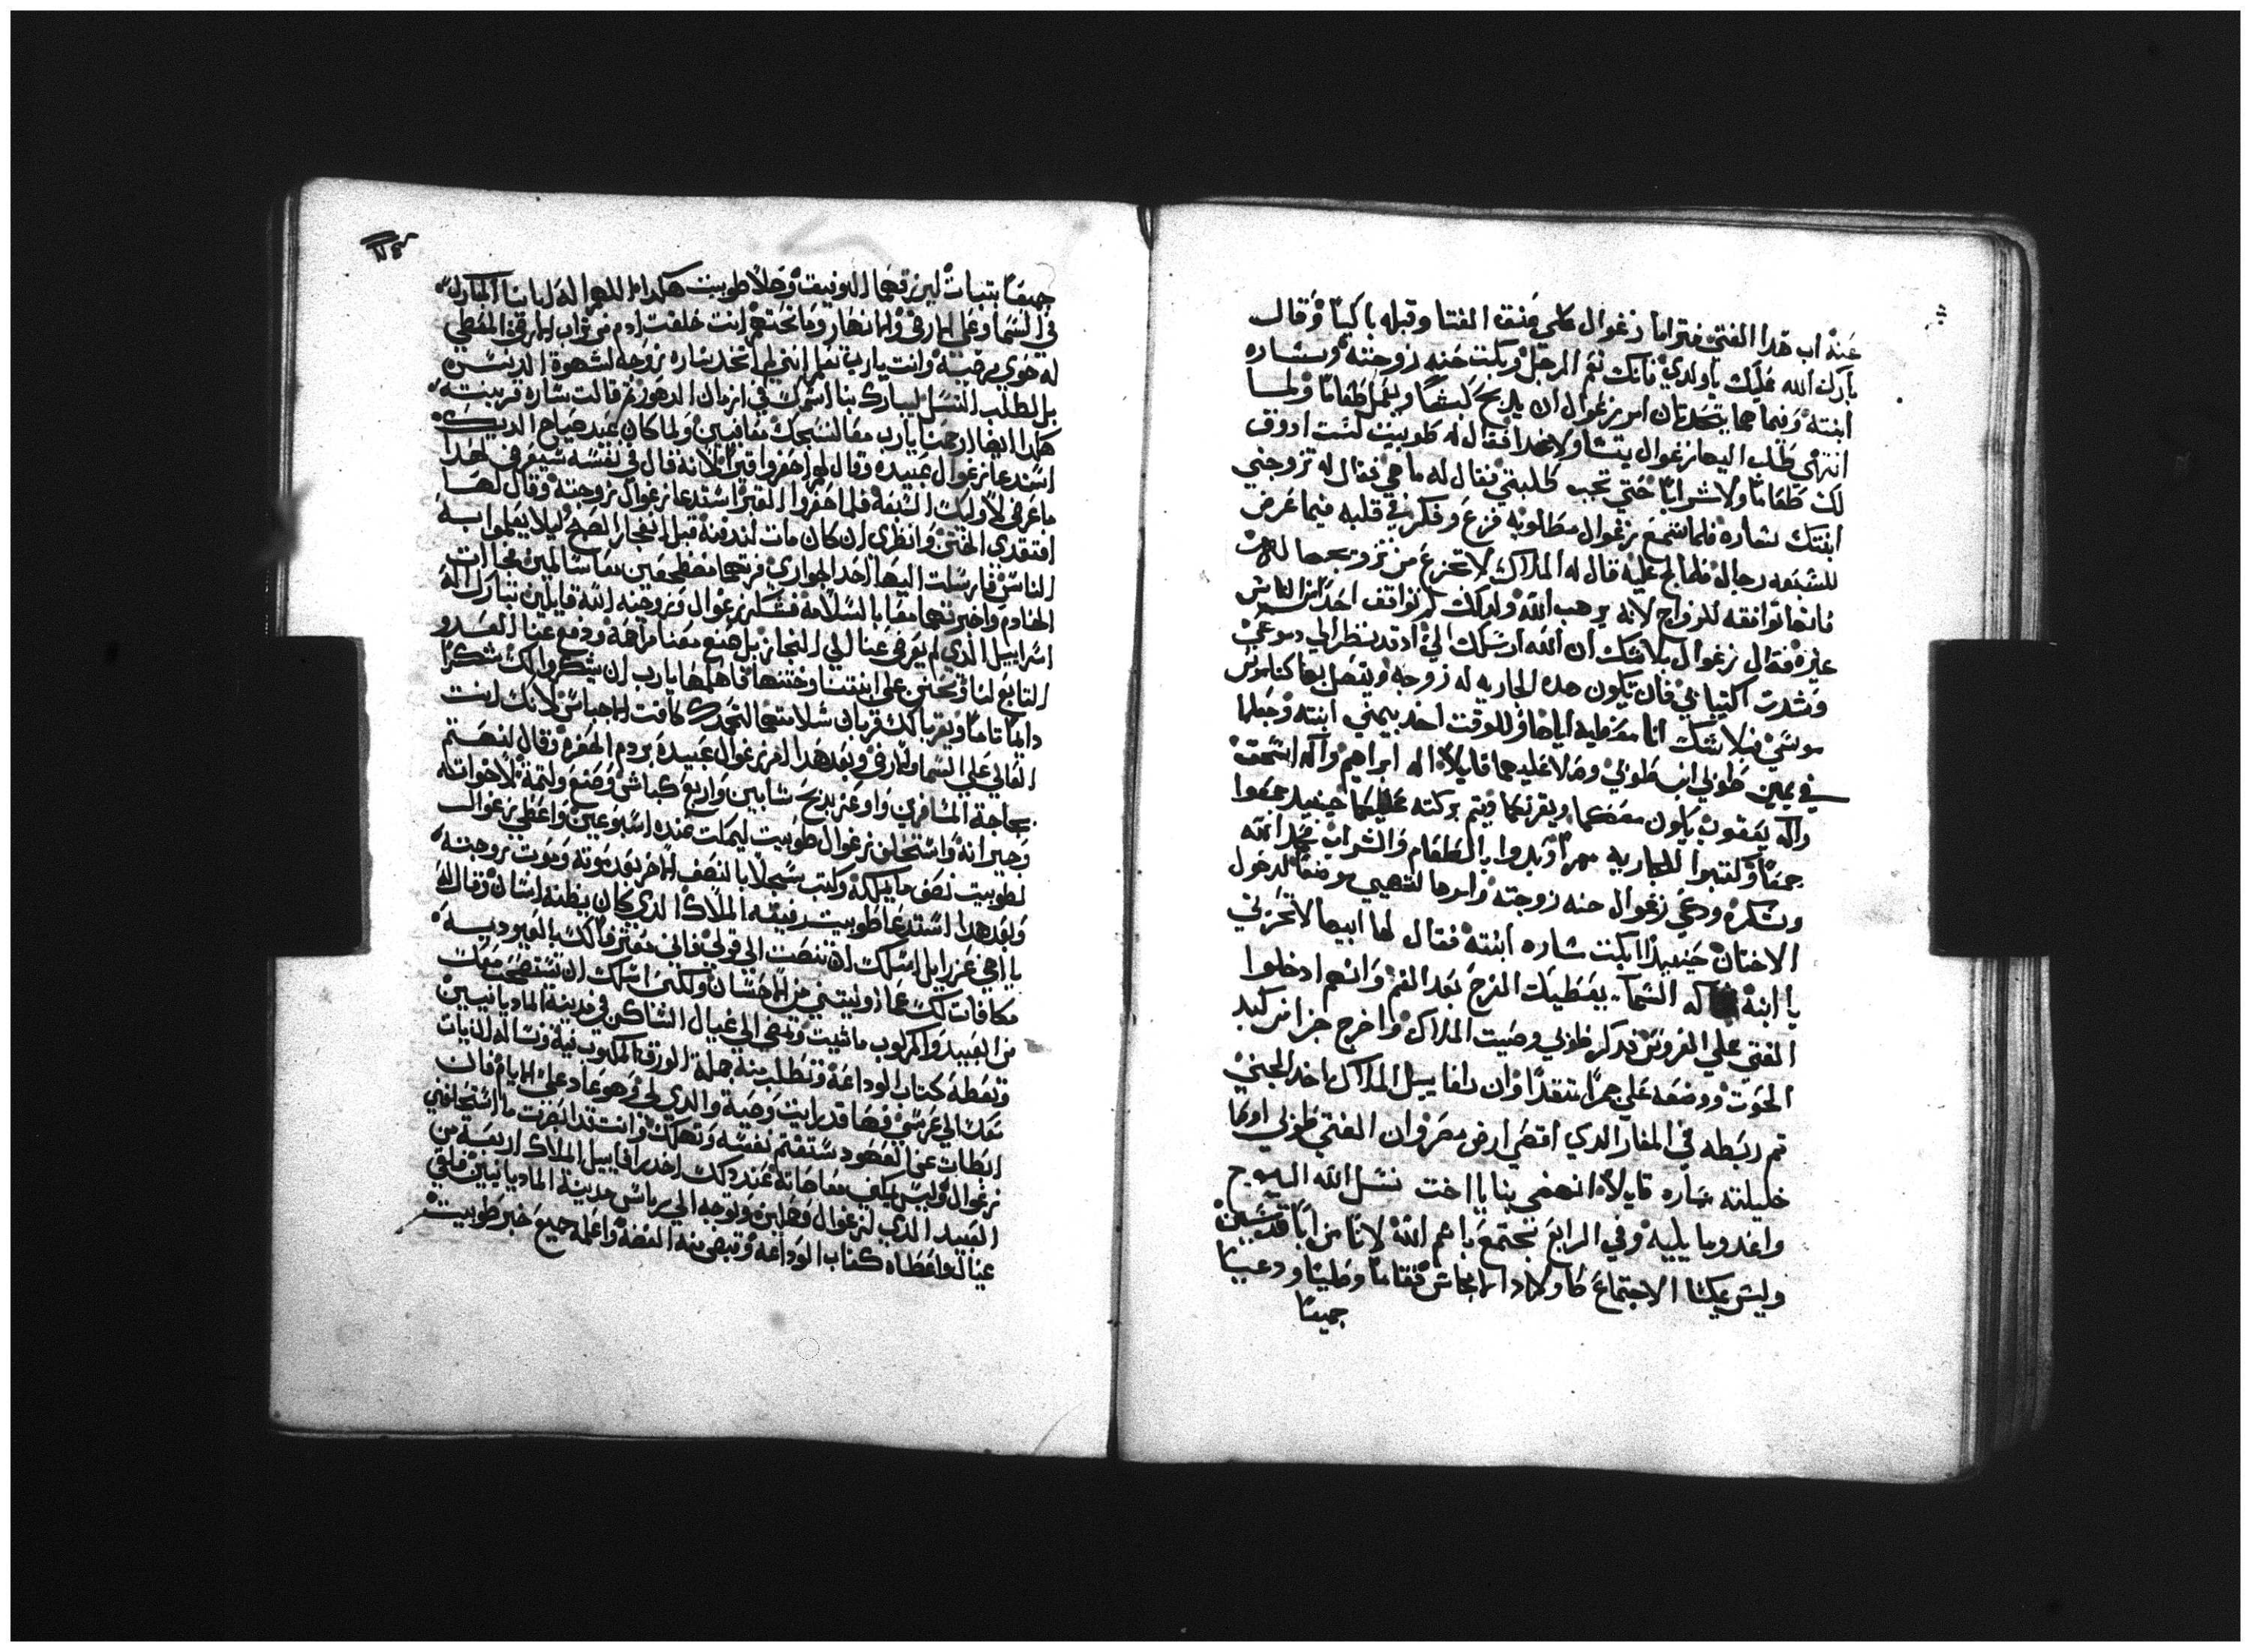 عنه اب هدا الفتي فترامًا زغوال علي عنق الفتا وقبله باكيًا وقال
بارك الله عليك يا ولدي فانك نعم الرجل وبكت حنه زوجته وساره
ابنته وفيما هما يتحدتان امر زغوال ان يدبح كبشًا ويعمل طعامًا ولما
انتهي طلب اليها زغوال يتشاولا غدا فقال له طوبيت لست ادوق
لك طعامًا ولا شرابًا حتي تجب طلبتي فقال له ما هي فقال له تزوجني
ابنتك ساره فلما سمع زغوال مطلوبه فزع وفكر في قلبه فيما عرض
للسبعه رجاله فلما لج عليه قال له الملاك لا تجزع من تزويجها له
فانها توافقه للزواج لانه يرهب الله ولدلك لم توافق احدًا من الناس
غيره فقال زغوال بلا شك ان الله ارسلك الي اد قد نظر الي دموعي
وشدت اكتيابي فان تكون هده الجاريه له زوجه ويتصل بها كناموس
موسي فبلا شك انا معطيه اياها وللوقت اخد بيمني ابنته وجعلها
في يمين طوبي ابن طوبي وصلا عليهما قايلاً اله ابراهيم واله اسحق
واله يعقوب يكون معكما ويقرنكما ويتم بركته عليكما حينيد جمعوا
جمعًا وكتبوا للجاريه مهرًا وبدوا بالطعام والشراب بمجد الله
وشكره ودعي زغوال حنه زوجته وامرها لتهيي موضعًا لدخول
الاختان حينيدًا بكت ساره ابنته فقال لها ابيها لا تحزني
يا ابنة اله السما يعطيك الفرح بعد الغم وانهم ادخلوا
الفتي علي العروس فدكر طوبي وصيت الملاك واخرج جزا من كبد
الحوت ووضعه علي جمرًا متقدًا وان رافاييل الملاك اخد الجني
تم ربطه في المغار الدي اقصي ارض مصر وان الفتي طوبي اوصا
خليلته ساره قايلاً انهضي بنا يا اخت نسل الله اليوم
واغد وما يليه وفي الرابع نجتمع باسم الله لانا من ابًا قديسين
وليس يمكنا الاجتماع كاولاد الانجاس فقاما وصليا ودعيا
جميعًا
جميعًا بتبات ليرزقهما التوفيق وصلا طوبيت هكدا اللهم اله ابانا المبارك
في السما وعلي الارض والانهار وما تحتهم انت خلقت ادم من تراب الارض المعطي
له حوي صاحبة وانت يارب تعلم انني لم اتخد ساره زوجه لشهوة الدنس
بل لطلب النسل ليبارك بنا اسمك في ازمان الدهور تم قالت ساره قرينته
هكدا ايضا ارحمنا يارب معا لنسبحك معافيين ولما كان عند صياح الديك
استدعا زغوال عبيده وقال لهم احفروا قبرًا لانه قال في نفسه سيعرض لهدا
ما عرض لاوليك السبعه فلما حفروا القبر استدعا زغوال زوجته وقال لها
افتقدي الختن وانظري ان كان مات لندفنه قبل انفجار الصبح ليلا يعلموا به
الناس فارسلت اليها احد الجواري فرتهما مضطجعين معا سالمين فجاات
الخادم واخبرتهما معا بالسلامه فشكر زغوال وزوجته الله قايلين تبارك اله
اسراييل الدي لم يعرض عنا الي النجاز بل صنع معنا مراحمه ودفع عنا العدو
التابع لنا وتحنن علي ابنتنا وختنها فاهلها يارب ان يشكروا لك شكرًا
دايمًا تامًا ويقربا لك قربان سلامتهما لتمجدك كافت الاجناس لانك انت
العالي علي السما والارض وبعد هدا امر زغوال عبيده بردم الحفره وقال لنهتم
بحاجة المسافرين واوعز بدبح شابين واربع كباش وصنع وليمة لاخوانه
وجيرانه واستحلف زغوال طوبيت ليمكت عنده اسبوعين واعطي زغوال
لطوبيت نصف ما يملكه وكتب سجلاً بالنصف الاخر بعد موته وموت زوجته
وبعد هدا استدعا طوبيت رفيقه الملاك الدي كان يظنه انسان وقال له
يا اخي عزرايل اسلك ان تنصت الي قولي فاني معترفًا لك بالعبوديه
مكافات لك عما اوليتني من الاحسان ولكني اسلك ان تستصحب معك
من العبيد والمركوب ما شيت وتمضي الي غيال الساكن في مدينة الماديانيين
وتعطه كتاب الوداعة وتطلب منه جملة الورق المكتوب فيه وتساله الاتيان
معك الي عرسي فها قد رايت وصية والدي لي فهو عاد علي الايام فان
ابطات عن العهود ستغتم نفسه وتهلك وانت قد ابصرت ما استحلفني
زغوال وليس يمكني معاصاته عند دلك اخد رافاييل الملاك اربعة من
العبيد الدي لزغوال وجملين وتوجه الي راس مدينة الماديانيين فلقي
غيال واعطاه كتاب الوداعه وقبض منه الفضه واعلمه جميع خبر طوبيت